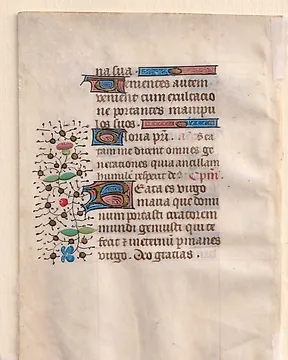 na sua.
Venientes autem
venient cum exultacio
ne portantes manipu
los suos.
Gloria pri.
tam me dicent omnes ge
neraciones quia ancillam
humilem respexit
Beata es virgo
maria que domi
num portasti creatorem
mundi genuisti qui te
fecit et ineternum pmanes
virgo. Deo gracias.